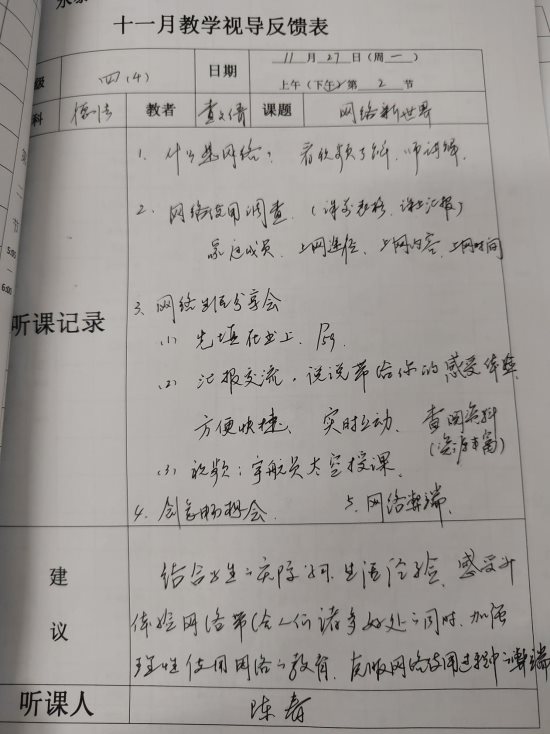 十一月教学视导反馈表
级 四(4) 日期 11月27日(周一)
上午(下午)第2节
科 德法 教者 课题 网络新世界
听课记录
1. 什么是网络? 看视频了解,师讲解.
2. 网络使用调查.(课前表格、课上汇报)
家庭成员、上网途径、上网内容、上网时间
3. 网络生活分享会
(1) 先填在书上. P59
(2) 汇报交流,说说带给你的感受体验
方便快捷、实时互动、查阅资料
(资源丰富)
(3) 视频:宇航员太空授课.
4. 创意畅想会. 5. 网络弊端.
5:00
6:00
建议
结合学生的实际,生活经验,感受并
体验网络带给人们诸多好处的同时,加强
理性使用网络的教育,克服网络使用过程中的弊端
听课人 陈春